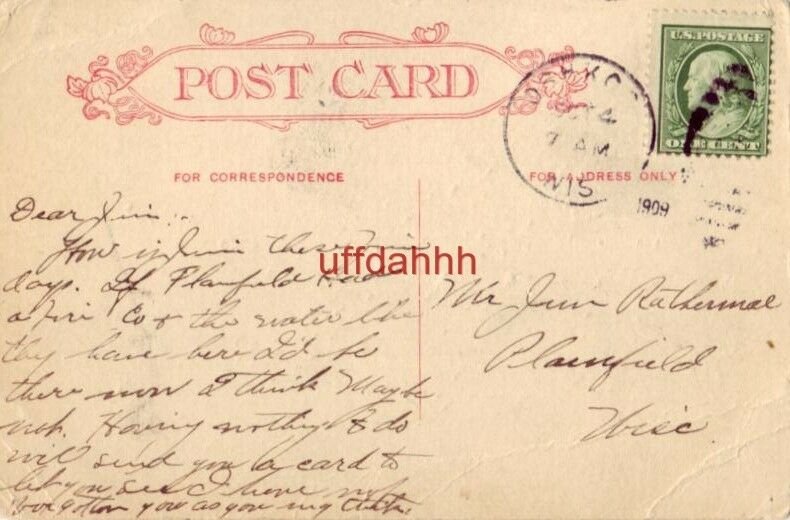 POST CARD
U.S. POSTAGE
ONE CENT
4
7 AM
WIS
1909
FOR CORRESPONDENCE
FOR ADDRESS ONLY
Dear Jim.
How is Jim these
days. If Plainfield had
a fire Co & the water like
they have here I'd be
there now I think Maybe
not. Having nothing to do
will send you a card to
let you see I have not
forgotten you as you my
Mr Jim
Plainfield
Wisc.
uffdahhh